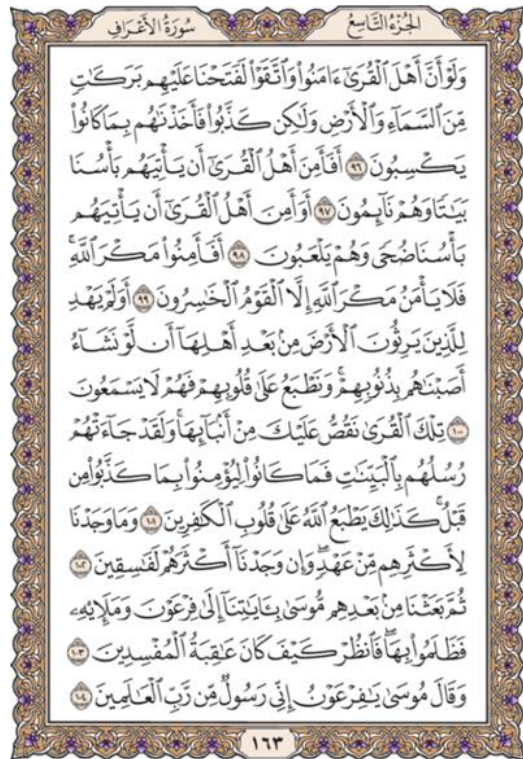 الجُزْءُ التَّاسِعُ
سُورَةُ الأَعْرَافِ
وَلَوْ أَنَّ أَهْلَ ٱلْقُرَىٰٓ ءَامَنُوا۟ وَٱتَّقَوْا۟ لَفَتَحْنَا عَلَيْهِم بَرَكَـٰتٍ
مِّنَ ٱلسَّمَآءِ وَٱلْأَرْضِ وَلَـٰكِن كَذَّبُوا۟ فَأَخَذْنَـٰهُم بِمَا كَانُوا۟
يَكْسِبُونَ ٩٦ أَفَأَمِنَ أَهْلُ ٱلْقُرَىٰٓ أَن يَأْتِيَهُم بَأْسُنَا
بَيَـٰتًا وَهُمْ نَآئِمُونَ ٩٧ أَوَأَمِنَ أَهْلُ ٱلْقُرَىٰٓ أَن يَأْتِيَهُم
بَأْسُنَا ضُحًى وَهُمْ يَلْعَبُونَ ٩٨ أَفَأَمِنُوا۟ مَكْرَ ٱللَّهِ ۚ
فَلَا يَأْمَنُ مَكْرَ ٱللَّهِ إِلَّا ٱلْقَوْمُ ٱلْخَـٰسِرُونَ ٩٩ أَوَلَمْ يَهْدِ
لِلَّذِينَ يَرِثُونَ ٱلْأَرْضَ مِنۢ بَعْدِ أَهْلِهَآ أَن لَّوْ نَشَآءُ
أَصَبْنَـٰهُم بِذُنُوبِهِمْ ۚ وَنَطْبَعُ عَلَىٰ قُلُوبِهِمْ فَهُمْ لَا يَسْمَعُونَ
١٠٠ تِلْكَ ٱلْقُرَىٰ نَقُصُّ عَلَيْكَ مِنْ أَنۢبَآئِهَا ۚ وَلَقَدْ جَآءَتْهُمْ
رُسُلُهُم بِٱلْبَيِّنَـٰتِ فَمَا كَانُوا۟ لِيُؤْمِنُوا۟ بِمَا كَذَّبُوا۟ مِن
قَبْلُ ۚ كَذَٰلِكَ يَطْبَعُ ٱللَّهُ عَلَىٰ قُلُوبِ ٱلْكَـٰفِرِينَ ١٠١ وَمَا وَجَدْنَا
لِأَكْثَرِهِم مِّنْ عَهْدٍ ۖ وَإِن وَجَدْنَآ أَكْثَرَهُمْ لَفَـٰسِقِينَ ١٠٢
ثُمَّ بَعَثْنَا مِنۢ بَعْدِهِم مُّوسَىٰ بِـَٔايَـٰتِنَآ إِلَىٰ فِرْعَوْنَ وَمَلَإِي۟هِۦ
فَظَلَمُوا۟ بِهَا ۖ فَٱنظُرْ كَيْفَ كَانَ عَـٰقِبَةُ ٱلْمُفْسِدِينَ ١٠٣
وَقَالَ مُوسَىٰ يَـٰفِرْعَوْنُ إِنِّى رَسُولٌ مِّن رَّبِّ ٱلْعَـٰلَمِينَ ١٠٤
١٦٣